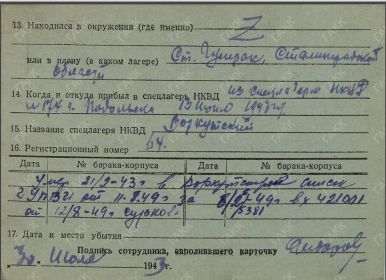 13. Находился в окружении (где именно) Z
или в плену (в каком лагере) Ст. Гумрак, Сталинградской
области
14. Когда и откуда прибыл в спецлагерь НКВД из спецлагеря НКВД
№ 174 г. Подольска 13 июля 1943 г.
15. Название спецлагеря НКВД Воркутский
16. Регистрационный номер 64.
Дата № барака-корпуса Дата № барака-корпуса
Умер 21/9-43 г в Воркутстрое список
2 УПВИ от 11.8.49 г за 8/8-49 г вх 421001
от 12/8-49 г 5381
17. Дата и место убытия
Подпись сотрудника, заполнявшего карточку
30. Июля 1943 г.